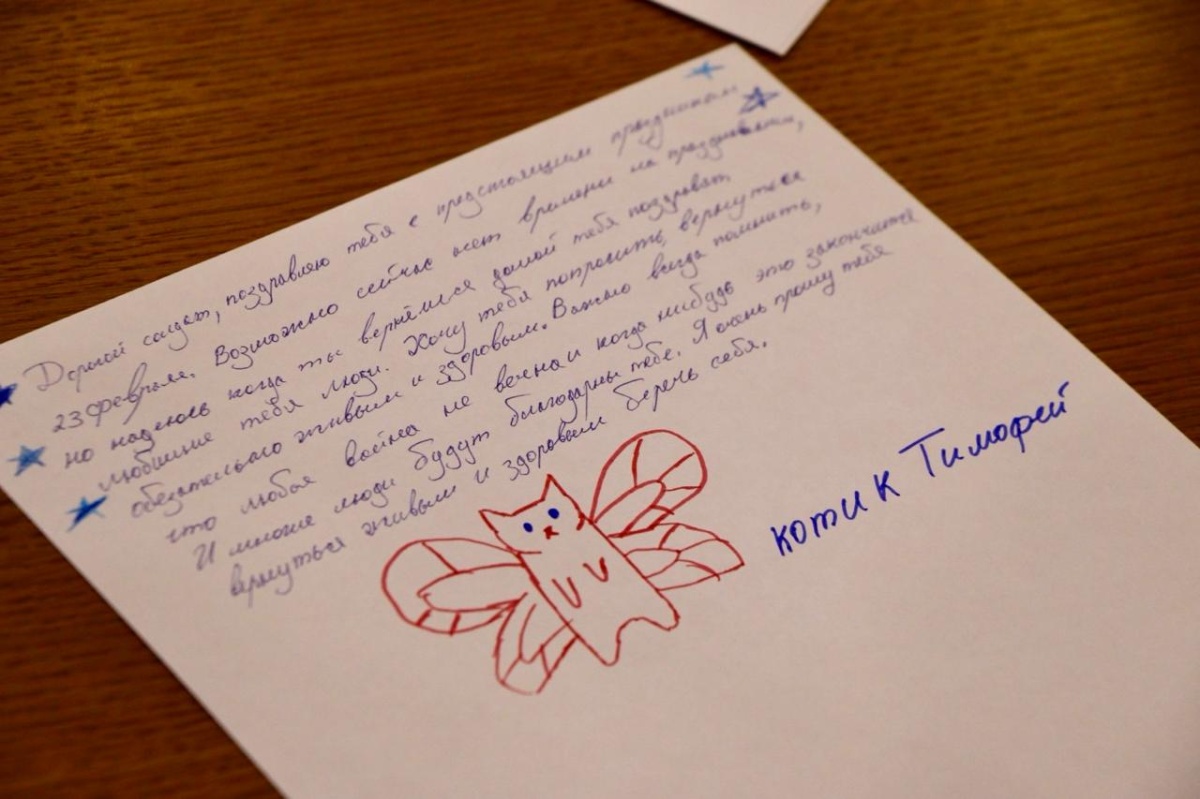 Дорогой солдат, поздравляю тебя с предстоящим праздником
23 февраля. Возможно сейчас нет времени на празднования,
но надеюсь когда ты вернёшься домой тебя поздравят
любящие тебя люди. Хочу тебя попросить, вернуться
обязательно живым и здоровым. Важно всегда помнить,
что любая война не вечна и когда нибудь это закончится
И многие люди будут благодарны тебе. Я очень прошу тебя
вернуться живым и здоровым беречь себя.
котик Тимофей